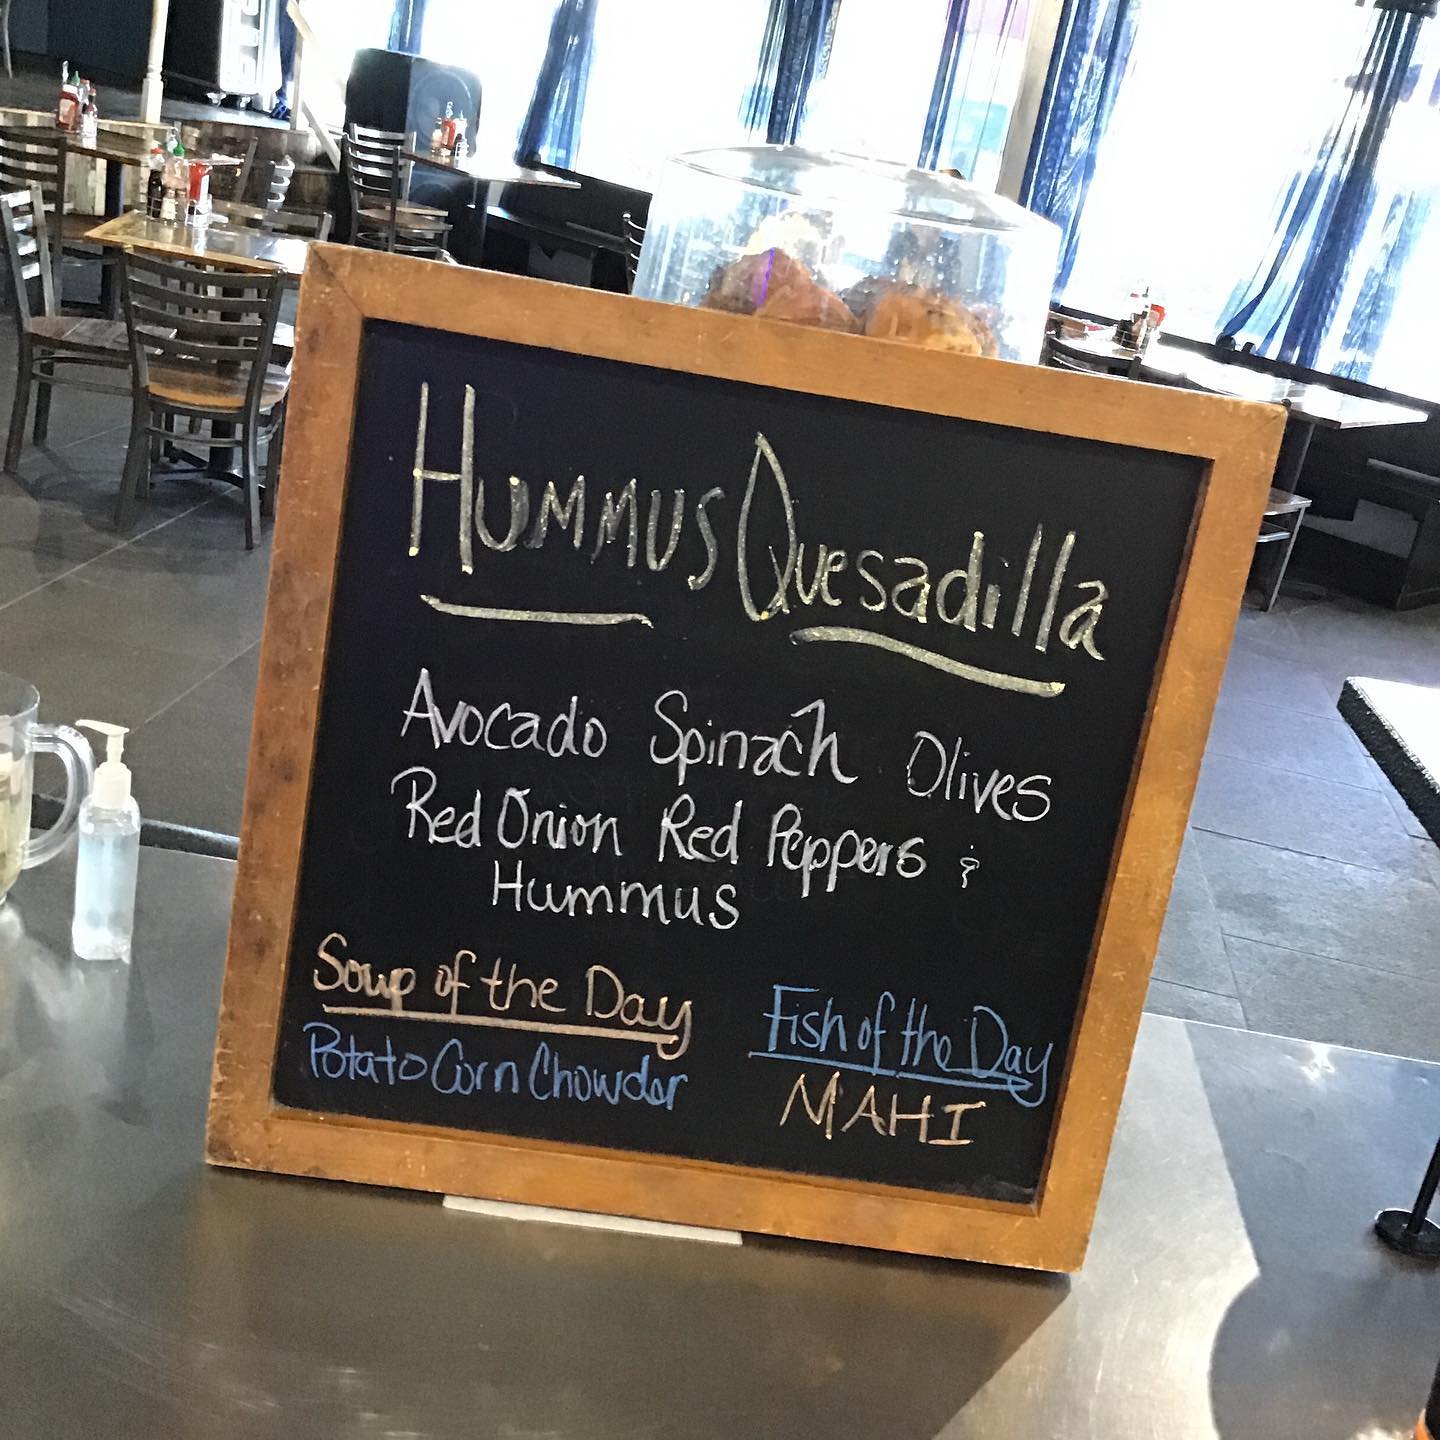 Hummus Quesadilla
Avocado Spinach Olives
Red Onion Red Peppers &
Hummus
Soup of the Day
Potato Corn Chowder
Fish of the Day
MAHI